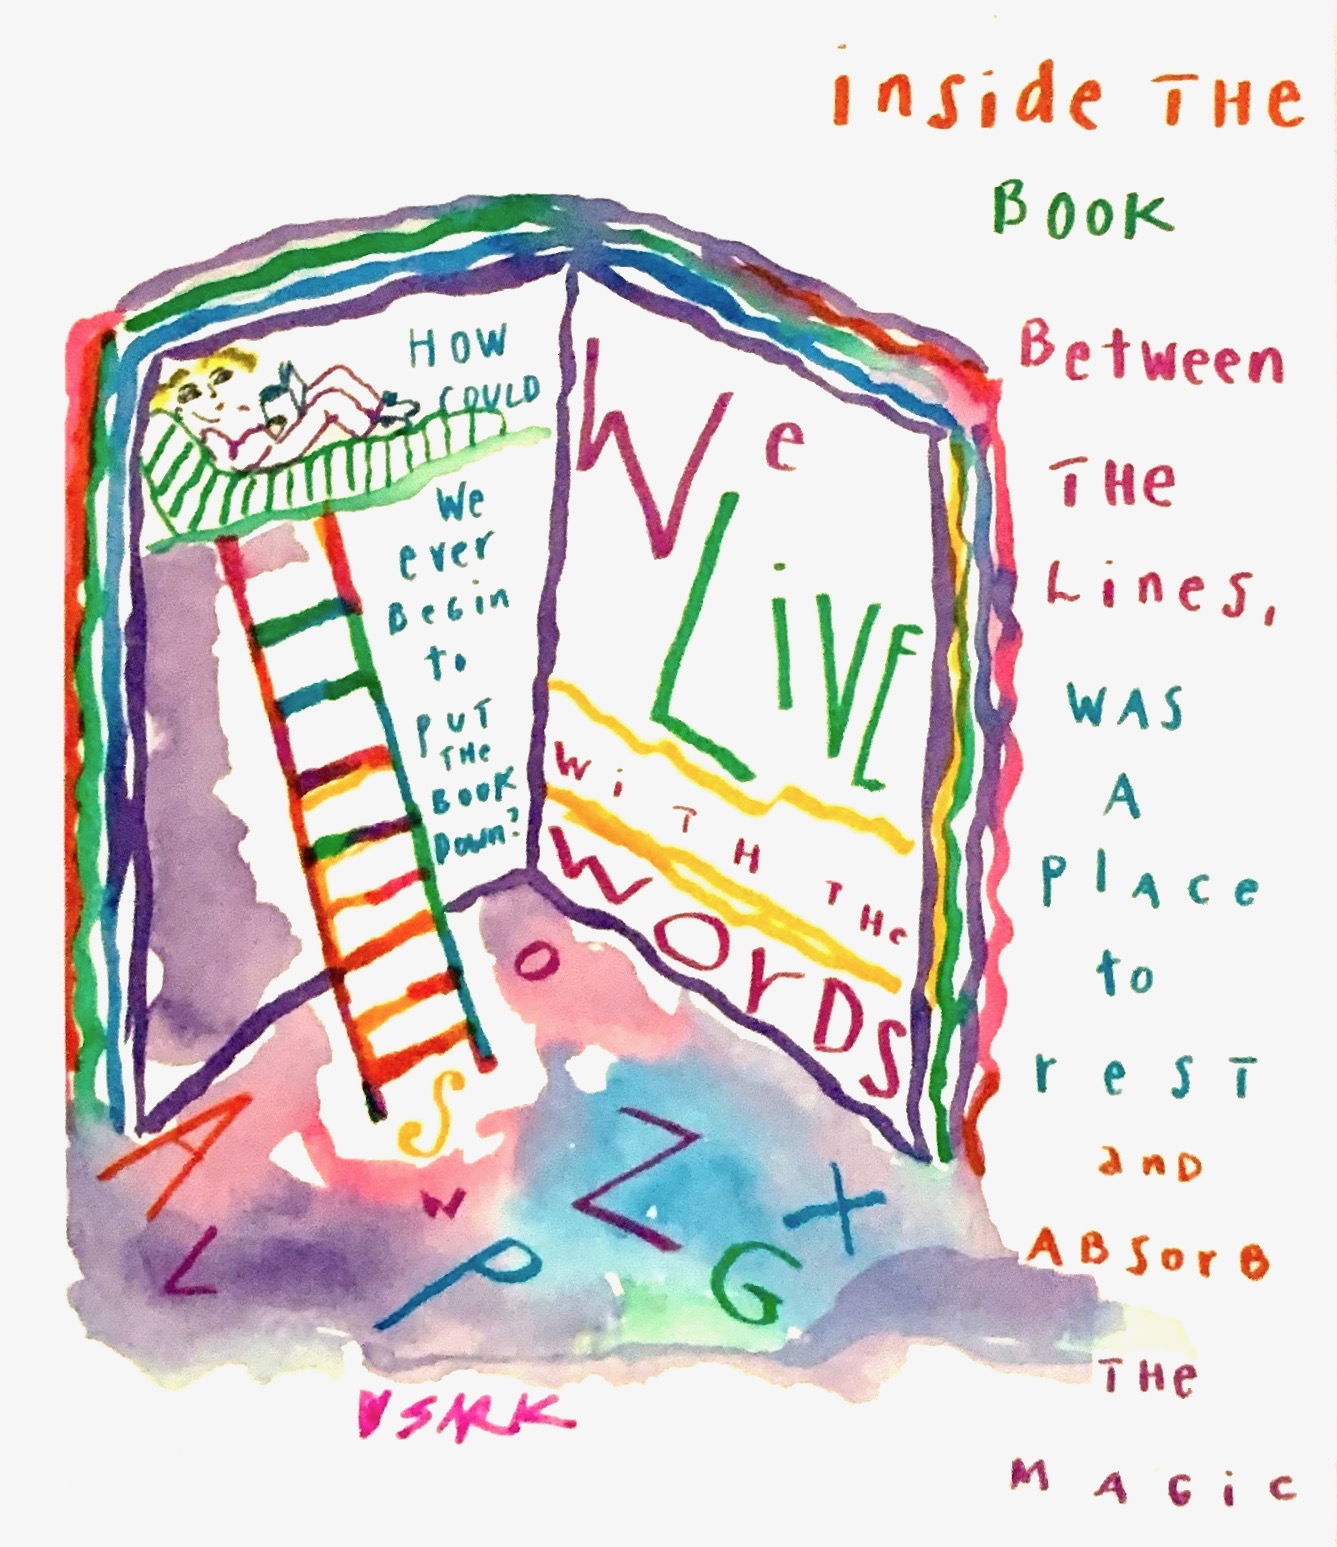 inside THe
BOOK
Between
THe
Lines,
WAS
A
PlAce
to
reST
anD
ABSorB
THe
MAGic
HOW
COULD
We
ever
BeGin
to
PUT
THe
BOOK
DOWn?
We
LiVE
WiTH THe
WOrDS
O
A
S
Z
W
X
L
P
G
SARK